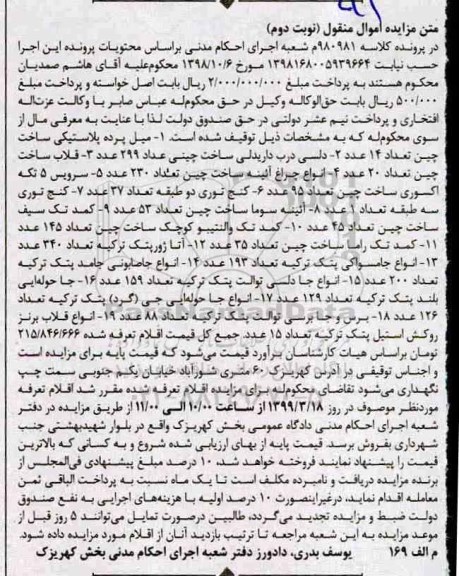 متن مزایده اموال منقول (نوبت دوم)
در پرونده کلاسه ۹۸۰۹۸۱م شعبه اجرای احکام مدنی براساس محتویات پرونده این اجرا
حسب نیابت ۱۳۹۸۱۶۸۰۰۵۹۳۹۶۶۴ مورخ ۱۳۹۸/۱۰/۶ محکوم‌علیه آقای هاشم صمدیان
محکوم هستند به پرداخت مبلغ ۲/۰۰۰/۰۰۰/۰۰۰ ریال بابت اصل خواسته و پرداخت مبلغ
۵۰۰/۰۰۰ ریال بابت حق‌الوکاله وکیل در حق محکوم‌له عباس صابر با وکالت عزت‌اله
افتخاری و پرداخت نیم عشر دولتی در حق صندوق دولت لذا با عنایت به معرفی مال از
سوی محکوم‌له که به مشخصات ذیل توقیف شده است. ۱- میل پرده پلاستیکی ساخت
چین تعداد ۱۴ عدد ۲- دلسی درب داریدلی ساخت چینی عداد ۲۹۹ عدد ۳- قلاب ساخت
چین تعداد ۲۰ عدد ۴- انواع چراغ آئینه ساخت چین تعداد ۲۳۰ عدد ۵- سرویس ۵ تکه
اکسوری ساخت چین تعداد ۹۵ عدد ۶- کنج توری دو طبقه تعداد ۳۷ عدد ۷- کنج توری
سه طبقه تعداد ۷۱ عدد ۸- آئینه سوما ساخت چین تعداد ۵۳ عدد ۹- کمد تک سیف
ساخت چین تعداد ۴۵ عدد ۱۰- کمد تک والنتییو کوچک ساخت چین تعداد ۱۴۵ عدد
۱۱- کمد تک راما ساخت چین تعداد ۳۵ عدد ۱۲- آتا ژورپتک ترکیه تعداد ۳۴۰ عدد
۱۳- انواع جامسواکی پتک ترکیه تعداد ۱۹۳ عدد ۱۴- انواع جاصابونی جامد پتک ترکیه
تعداد ۲۰۰ عدد ۱۵- انواع جا دلسی توالت پتک ترکیه تعداد ۱۵۹ عدد ۱۶- جا حوله‌ایی
بلند پتک ترکیه تعداد ۱۲۹ عدد ۱۷- انواع جا حوله‌ایی جی (گرد) پتک ترکیه تعداد
۱۲۶ عدد ۱۸- برس و جا برسی توالت پتک ترکیه تعداد ۸۸ عدد ۱۹- انواع قلاب برنز
روکش استیل پتک ترکیه تعداد ۱۵ عدد. جمع کل قیمت اقلام تعرفه شده ۲۱۵/۸۴۶/۶۶۶
تومان براساس هیات کارشناسان برآورد قیمت می‌شود که قیمت پایه برای مزایده است
و اجناس توقیفی در آدرس کهریزک ۶۰ متری شورآباد خیابان یکم جنوبی سمت چپ
نگهداری می‌شود تقاضای محکوم‌له برای مزایده اقلام تعرفه شده مقرر شد اقلام تعرفه
موردنظر موصوف در روز ۱۳۹۹/۳/۱۸ از ساعت ۱۰/۰۰ الی ۱۱/۰۰ از طریق مزایده در دفتر
شعبه اجرای احکام مدنی دادگاه عمومی بخش کهریزک واقع در بلوار شهیدبهشتی جنب
شهرداری بفروش برسد. قیمت پایه از بهای ارزیابی شده شروع و به کسانی که بالاترین
قیمت را پیشنهاد نمایند فروخته خواهد شد، ۱۰ درصد مبلغ پیشنهادی فی‌المجلس از
برنده مزایده دریافت و نامبرده مکلف است تا یک ماه نسبت به پرداخت الباقی ثمن
معامله اقدام نماید، درغیراینصورت ۱۰ درصد اولیه با هزینه‌های اجرایی به نفع صندوق
دولت ضبط و مزایده تجدید می‌گردد، طالبین درصورت تمایل می‌توانند ۵ روز قبل از
موعد مزایده به این شعبه مراجعه تا ترتیب بازدید آنان از اقلام مورد مزایده داده شود.
م الف ۱۶۹ یوسف بدری، دادورز دفتر شعبه اجرای احکام مدنی بخش کهریزک